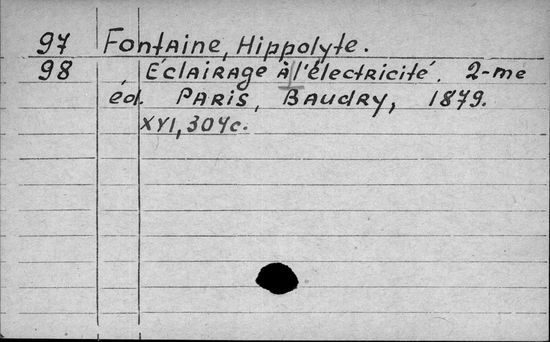 97 Fontaine, Hippolyte.
98 Eclairage à l'électricité. 2-me
éd. Paris, Baudry, 1879.
XVI, 304c.